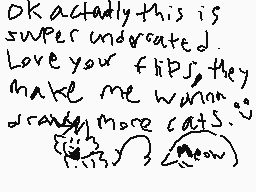 OK actually this is
super underrated.
Love your flips, they
make me wanna
draw more cats. :)
Meow